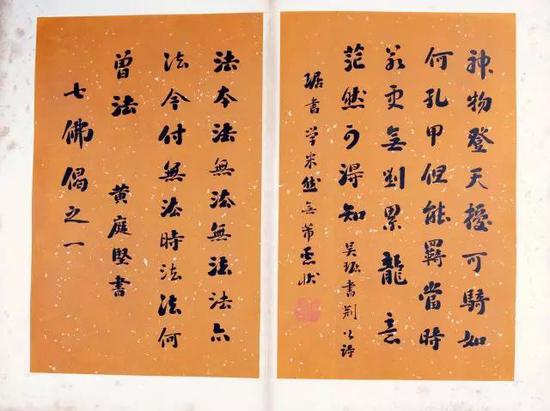 神物登天擾可騎如
何孔甲但能羈當時
若更無劉累龍意
茫然可得知 吳琚書荊公詩
琚書學米然無芾狀
法本法無法無法法亦
法今付無法時法法何
曾法 黃庭堅書
七佛偈之一